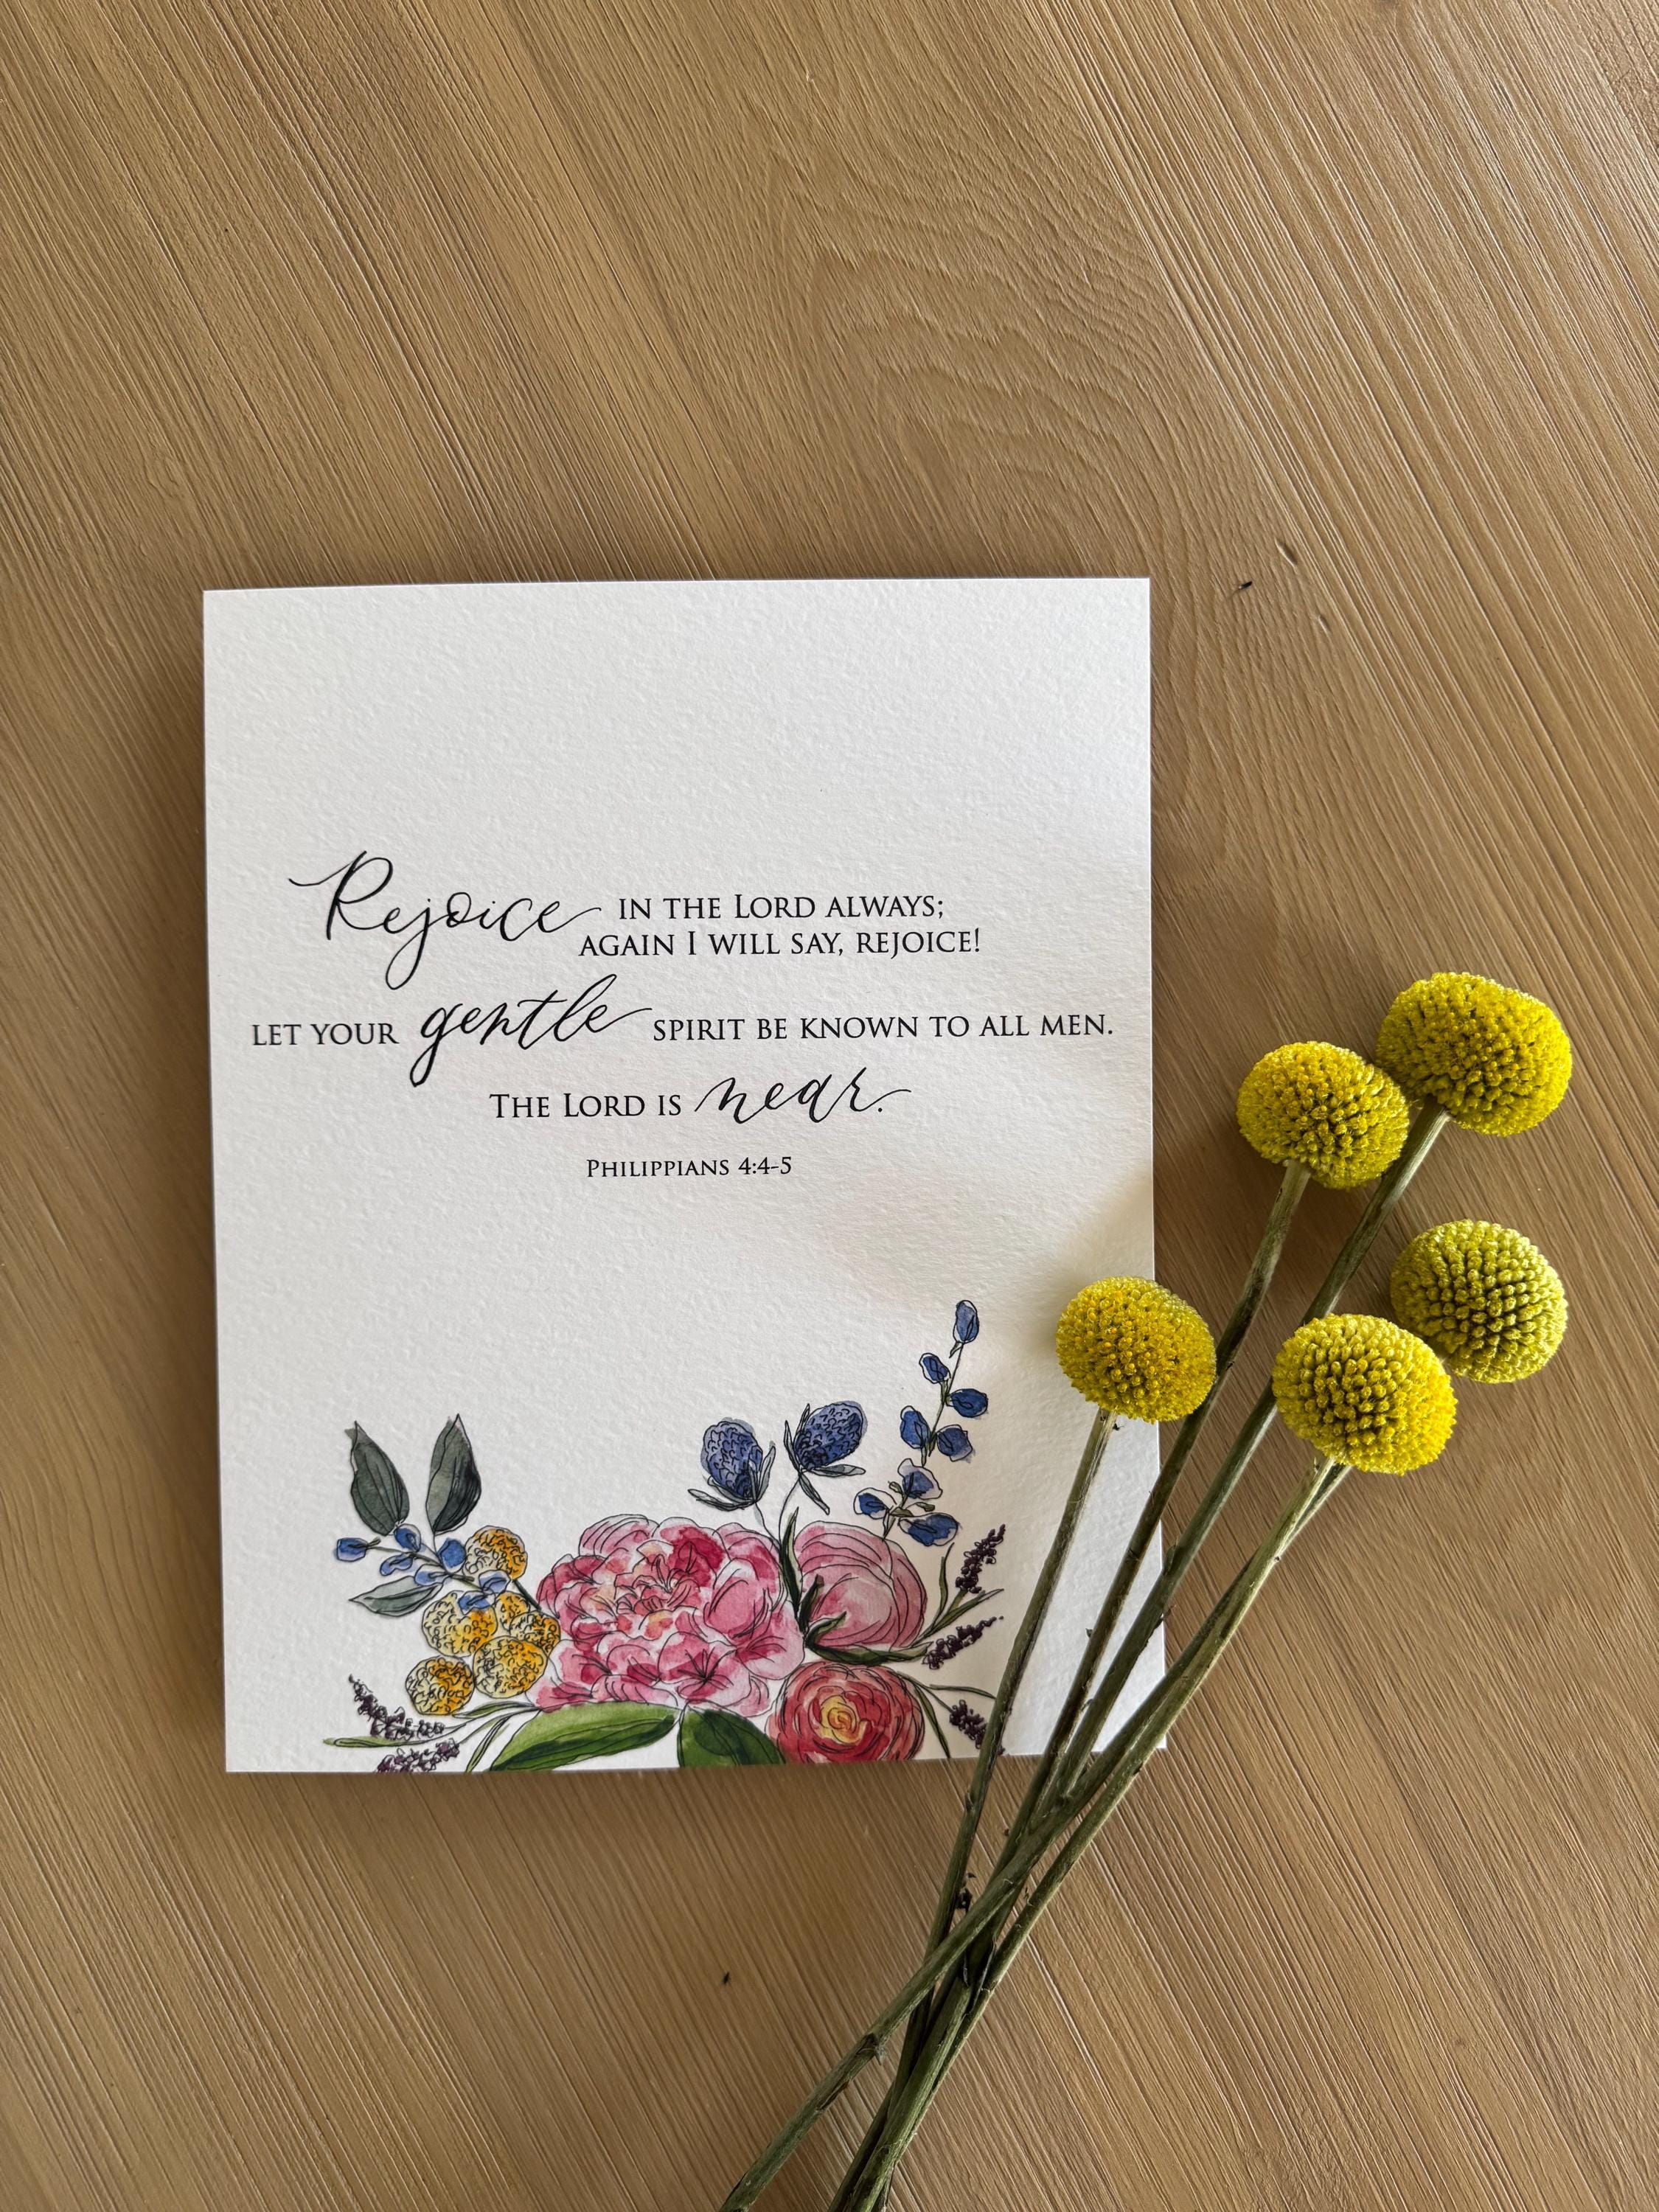 Rejoice IN THE LORD ALWAYS;
AGAIN I WILL SAY, REJOICE!
LET YOUR gentle SPIRIT BE KNOWN TO ALL MEN.
THE LORD IS near.
PHILIPPIANS 4:4-5